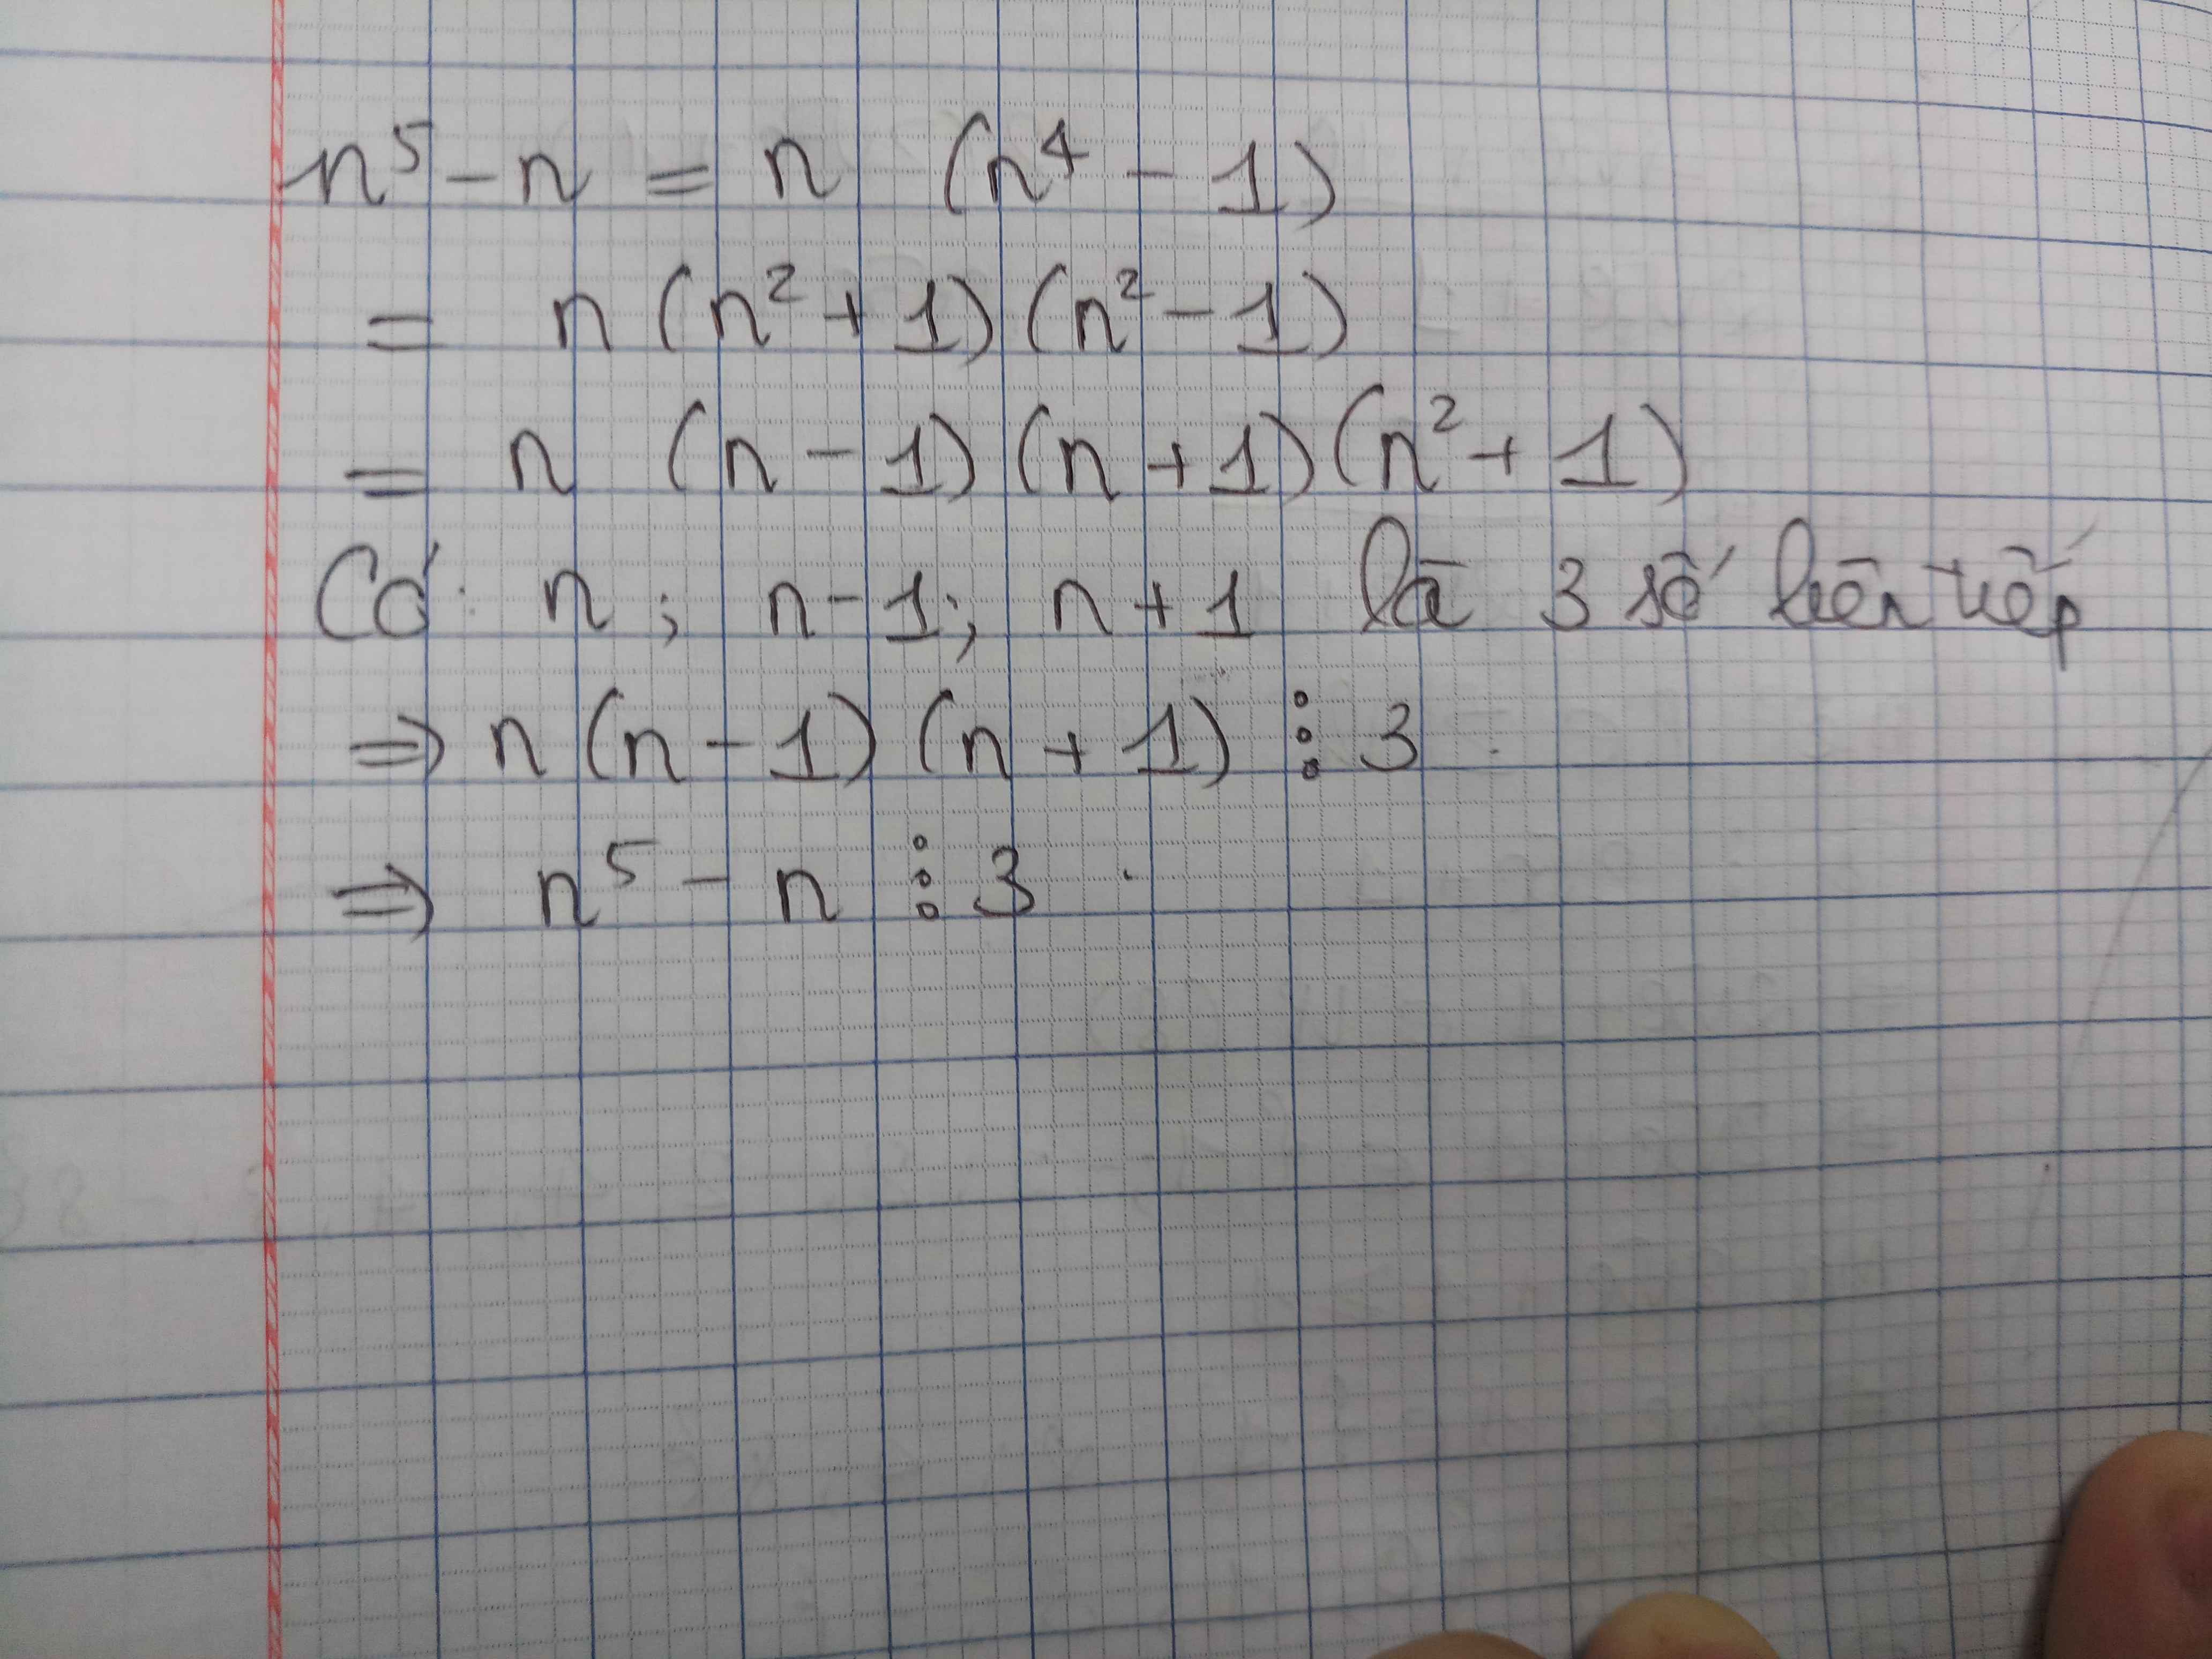 n⁵ - n = n (n⁴ - 1)
= n (n² + 1) (n² - 1)
= n (n - 1) (n + 1) (n² + 1)
Có: n ; n - 1 ; n + 1 là 3 số liên tiếp
⇒ n (n - 1) (n + 1) ⋮ 3
⇒ n⁵ - n ⋮ 3.